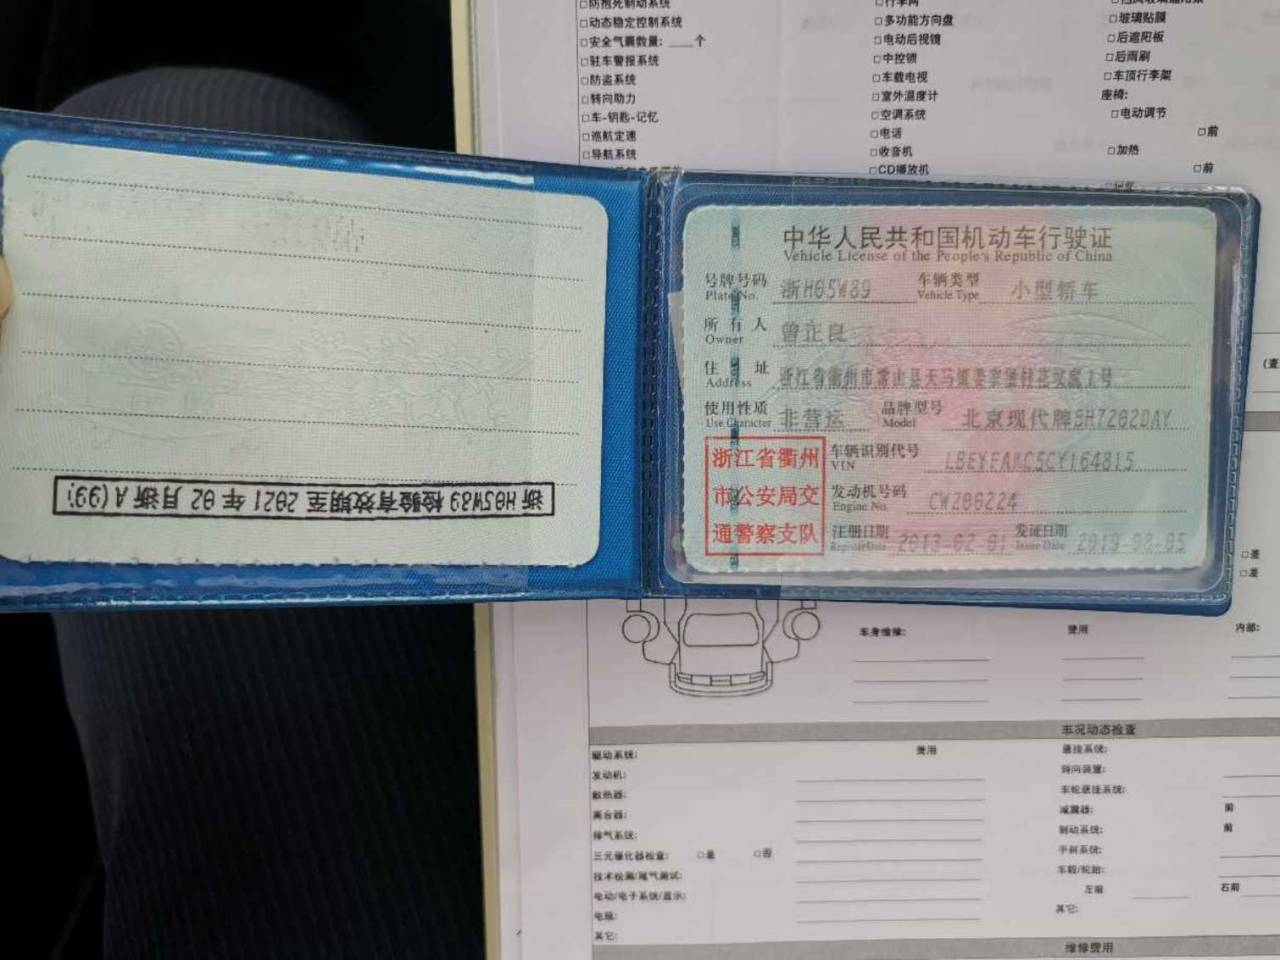 □动态稳定控制系统
□安全气囊数量: ____个
□驻车警报系统
□防盗系统
□转向助力
□车-钥匙-记忆
□巡航定速
□导航系统
□多功能方向盘
□电动后视镜
□中控锁
□车载电视
□室外温度计
□空调系统
□电话
□收音机
□CD播放机
□玻璃贴膜
□后遮阳板
□后雨刷
□车顶行李架
座椅:
□电动调节
□前
□加热
□前
中华人民共和国机动车行驶证
Vehicle License of the People's Republic of China
号牌号码 浙H05W89 车辆类型 小型轿车
Plate No. Vehicle Type
所有人 曾正良
Owner
住址 浙江省衢州市常山县天马镇
Address
使用性质 非营运 品牌型号 北京现代牌BH7202DAY
Use Character Model
浙江省衢州
市公安局交
通警察支队
车辆识别代号 LBEYFAKC5CY164815
VIN
发动机号码 CW200224
Engine No.
注册日期 2013-02-01 发证日期 2019-08-05
Register Date Issue Date
浙H05W89 检验有效期至 2021 年 02 月 浙 A (99)
车身维修: 费用 内部:
车况动态检查
驱动系统: 费用
发动机:
散热器:
离合器:
排气系统:
三元催化器检查: □是 □否
技术检测/尾气测试:
电动/电子系统/显示:
电瓶:
其它:
悬挂系统:
转向装置:
车轮悬挂系统:
减震器: 前
制动系统: 前
手刹系统:
车毂/轮胎:
左前 右前
其它:
维修费用